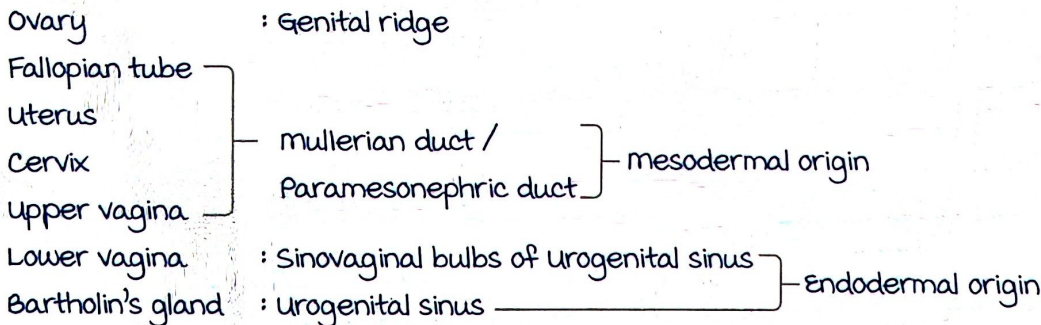 Ovary : Genital ridge
Fallopian tube
Uterus
Cervix
mullerian duct /
Paramesonephric duct
mesodermal origin
Upper vagina
Lower vagina : Sinovaginal bulbs of urogenital sinus
Bartholin's gland : Urogenital sinus
Endodermal origin